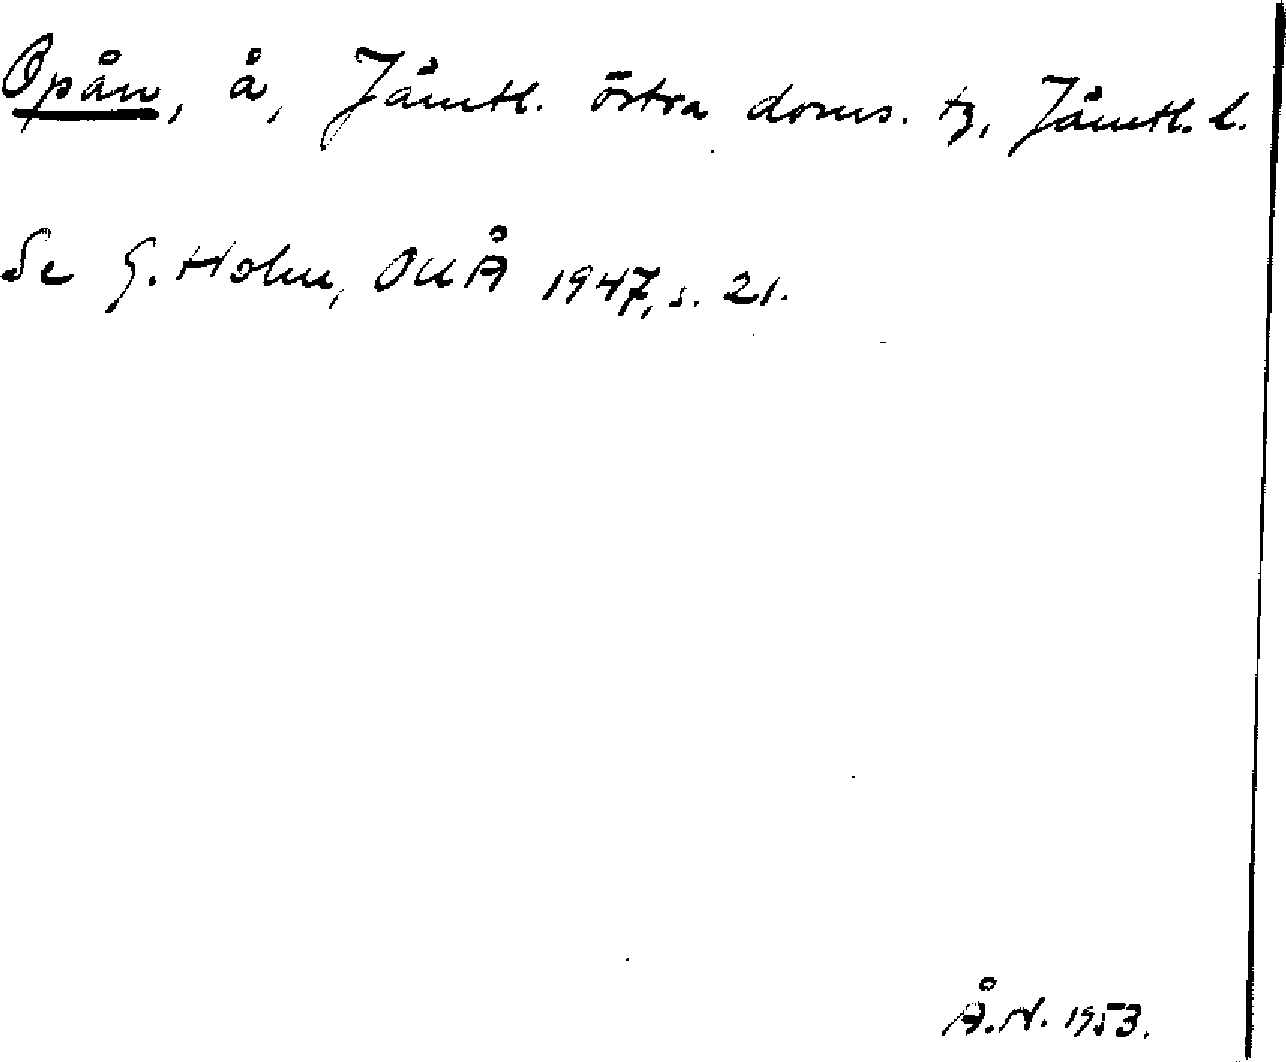 Opån, å, Jämtl. östra doms. tg, Jämtl. l.
Se G. Holm, OUÅ 1947, s. 21.
Å.N. 1953.